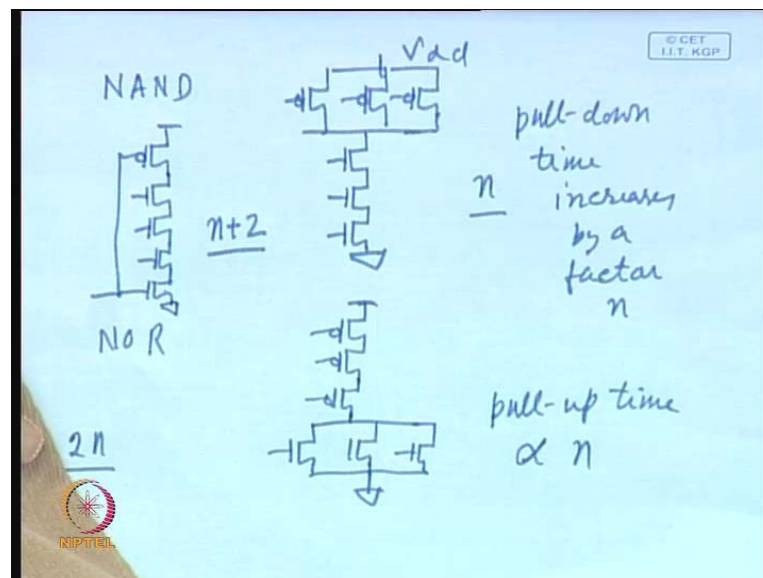 © CET
I.I.T. KGP
NAND
Vdd
n+2
n
pull-down
time
increases
by a
factor
n
NOR
2n
pull-up time
∝ n
NPTEL